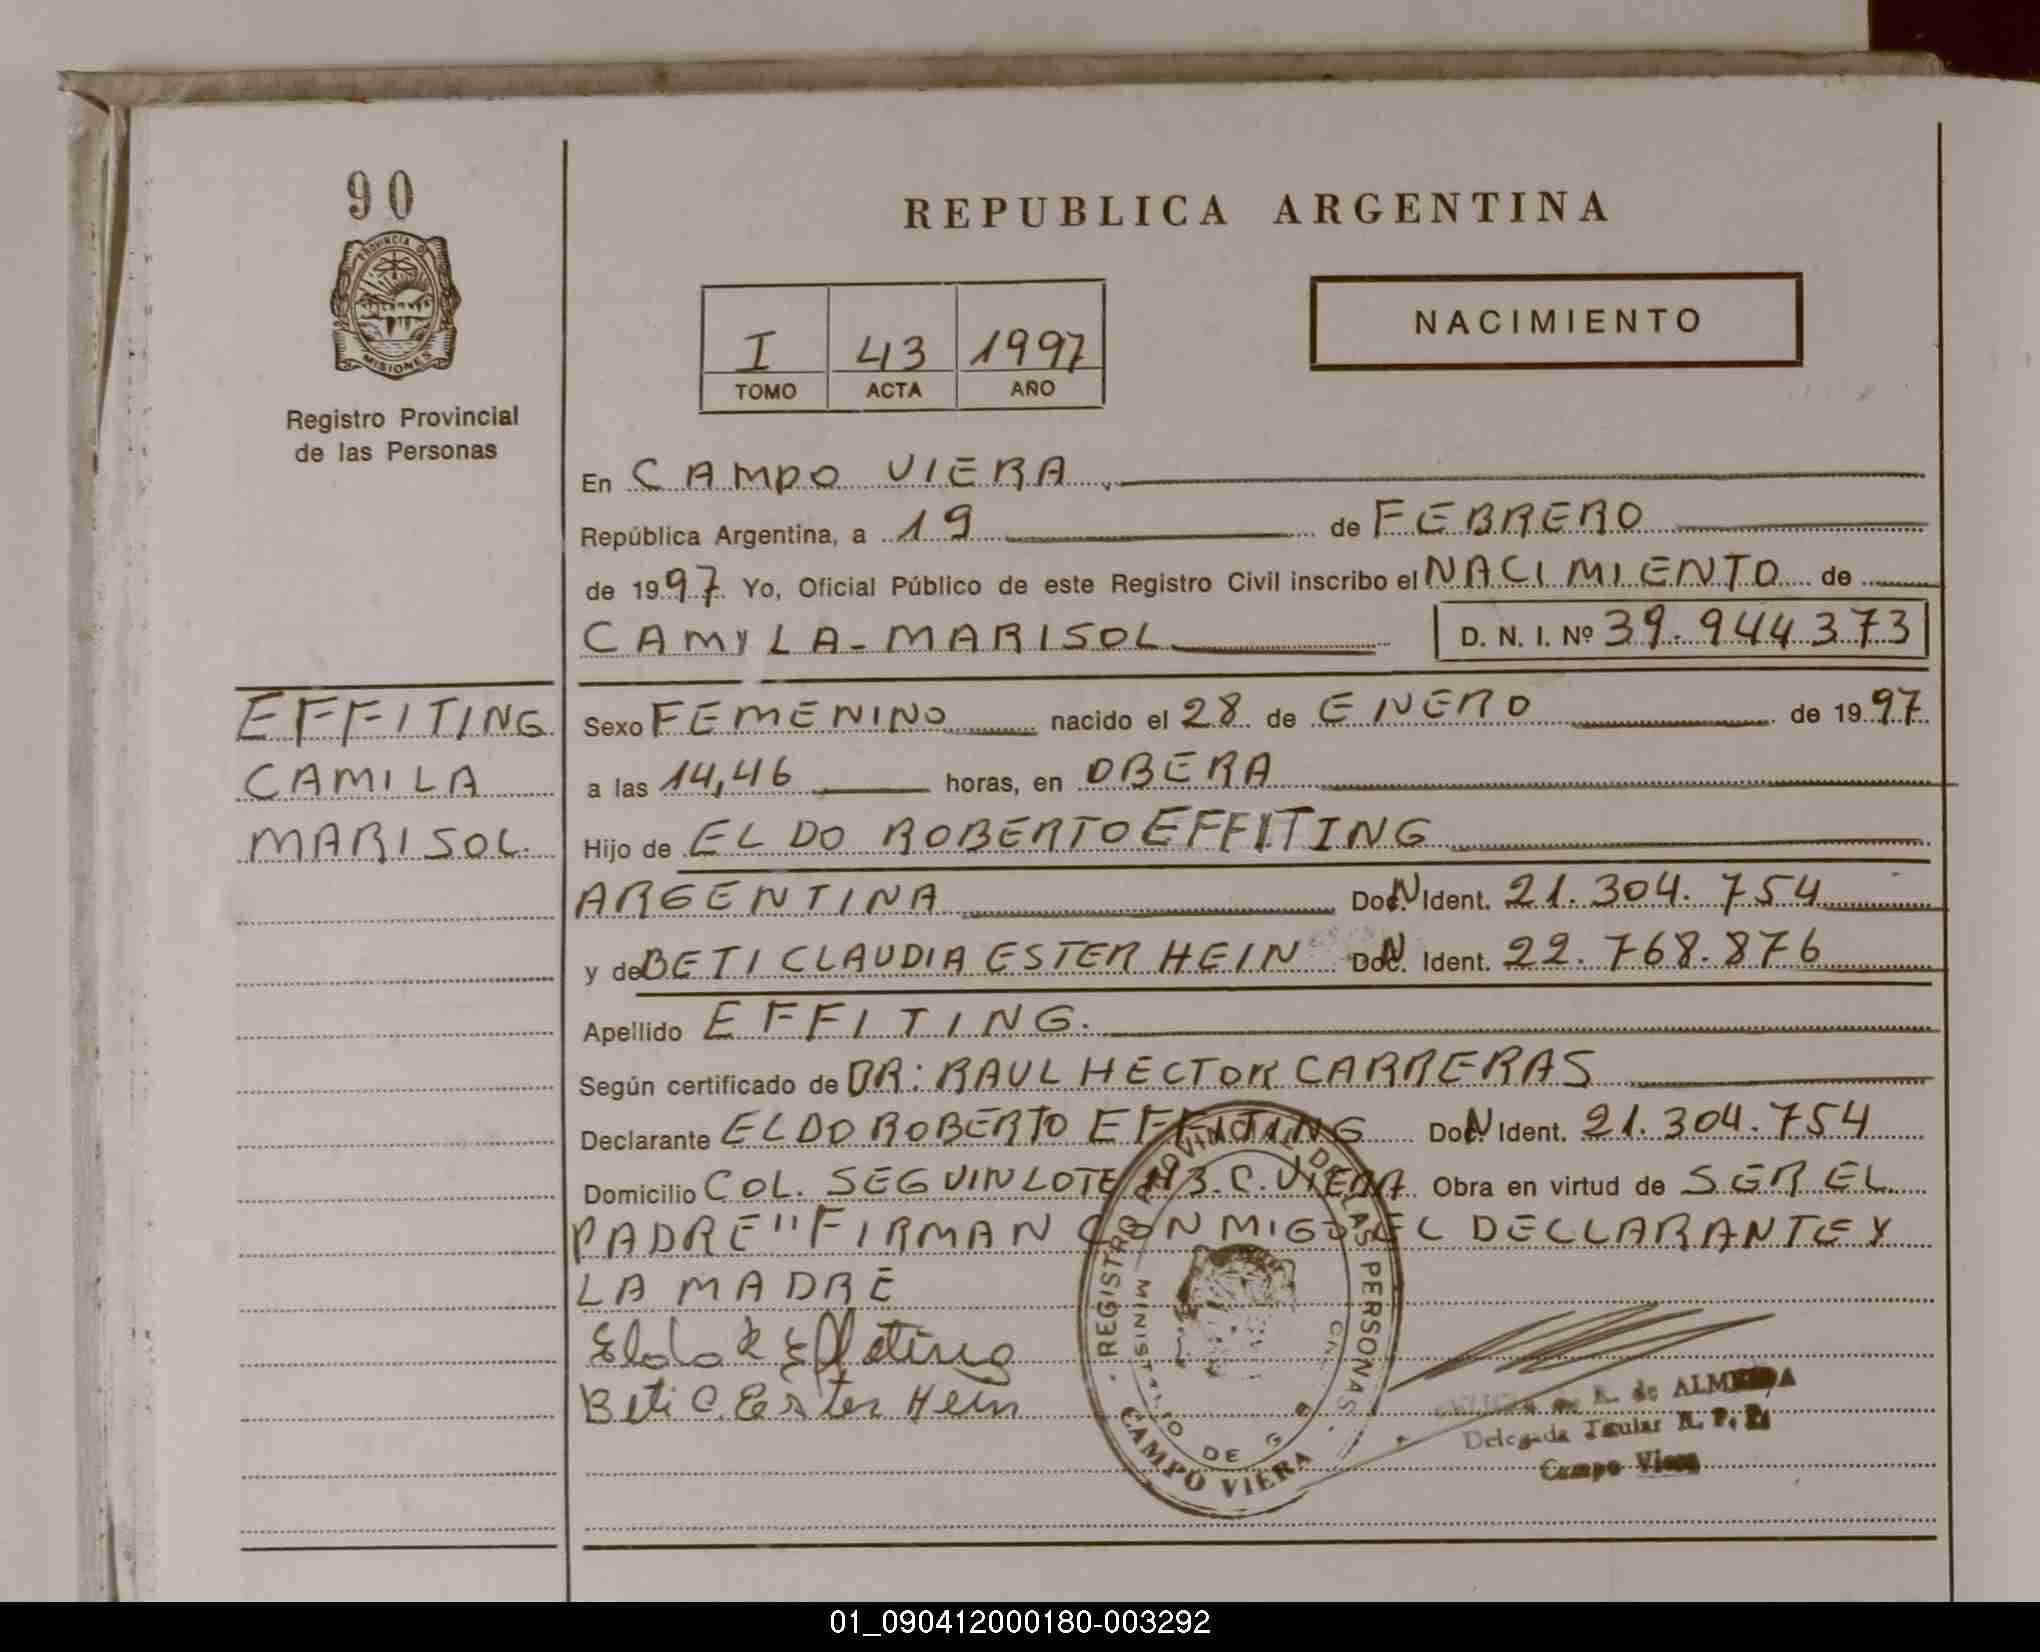 90
PROVINCIA DE
MISIONES
Registro Provincial
de las Personas
REPUBLICA ARGENTINA
I 43 1997
TOMO ACTA AÑO
NACIMIENTO
En CAMPO VIERA
República Argentina, a 19 de FEBRERO
de 1997 Yo, Oficial Público de este Registro Civil inscribo el NACIMIENTO de
CAMYLA-MARISOL D. N. I. Nº 39.944373
EFFITING
CAMILA
MARISOL.
Sexo FEMENINO nacido el 28 de ENERO de 1997
a las 14,46 horas, en OBERA
Hijo de ELDO ROBERTO EFFITING
ARGENTINA Doc. N Ident. 21.304.754
y de BETI CLAUDIA ESTER HEIN Doc. N Ident. 22.768.876
Apellido EFFITING.
Según certificado de DR: RAUL HECTOR CARRERAS
Declarante ELDO ROBERTO EFFITING Doc. N Ident. 21.304.754
Domicilio COL. SEGUIN LOTE 113. C. VIERA Obra en virtud de SER EL
PADRE" FIRMAN CONMIGO EL DECLARANTE Y
LA MADRE
Eldo R Effiting
Beti C. Ester Hein
REGISTRO PROVINCIAL DE LAS PERSONAS
CAMPO VIERA
de ALMEIDA
Delegada Titular R. P. P.
Campo Viera
01_090412000180-003292